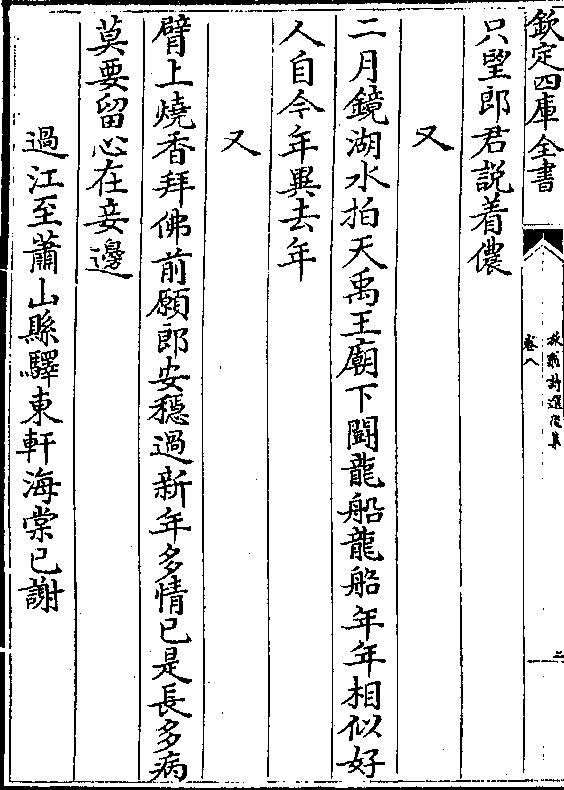 欽定四庫全書
放翁詩選後集
卷八
二
只望郎君説着儂
又
二月鏡湖水拍天禹王廟下鬬龍船龍船年年相似好
人自今年異去年
又
臂上燒香拜佛前願郎安穩過新年多情已是長多病
莫要留心在妾邊
過江至蕭山縣驛東軒海棠已謝